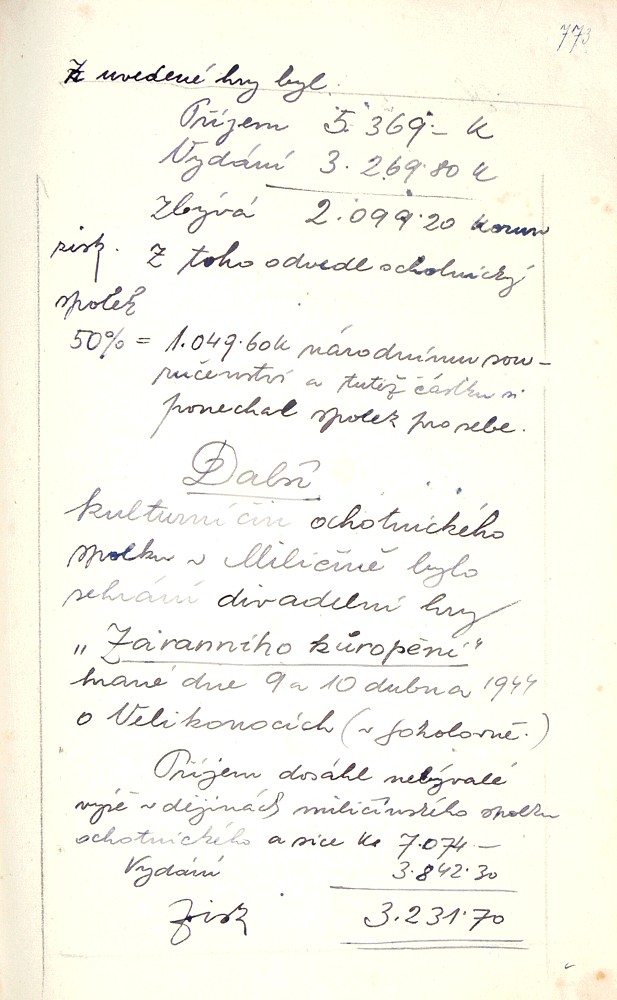 773
Z uvedené hry byl.
Příjem 5.369.- K
Vydání 3.269.80 K
Zbývá 2.099.20 korun
zisk. Z toho odvedl ochotnický
spolek
50% = 1.049.60K národnímu sou-
ručenství a tutéž částku si
ponechal spolek pro sebe.
Další
kulturní čin ochotnického
spolku v Miličíně bylo
sehrání divadelní hry
„Záranního kuropění"
hrané dne 9 a 10 dubna 1944
o Velikonocích (v sokolovně.)
Příjem dosáhl nebývalé
výše v dějinách miličínského spolku
ochotnického a sice Ks 7.074.—
Vydání 3.842.30
Zisk 3.231.70